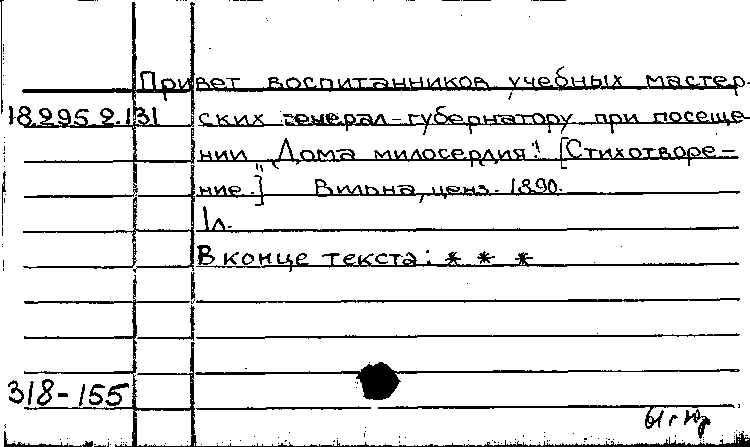 Привет воспитанников учебных мастер-
18.295.2.131 ских генерал-губернатору при посеще-
нии „Дома милосердия". [Стихотворе-
ние.] Вильна, ценз. 1890.
1л.
В конце текста: * * *
318-155